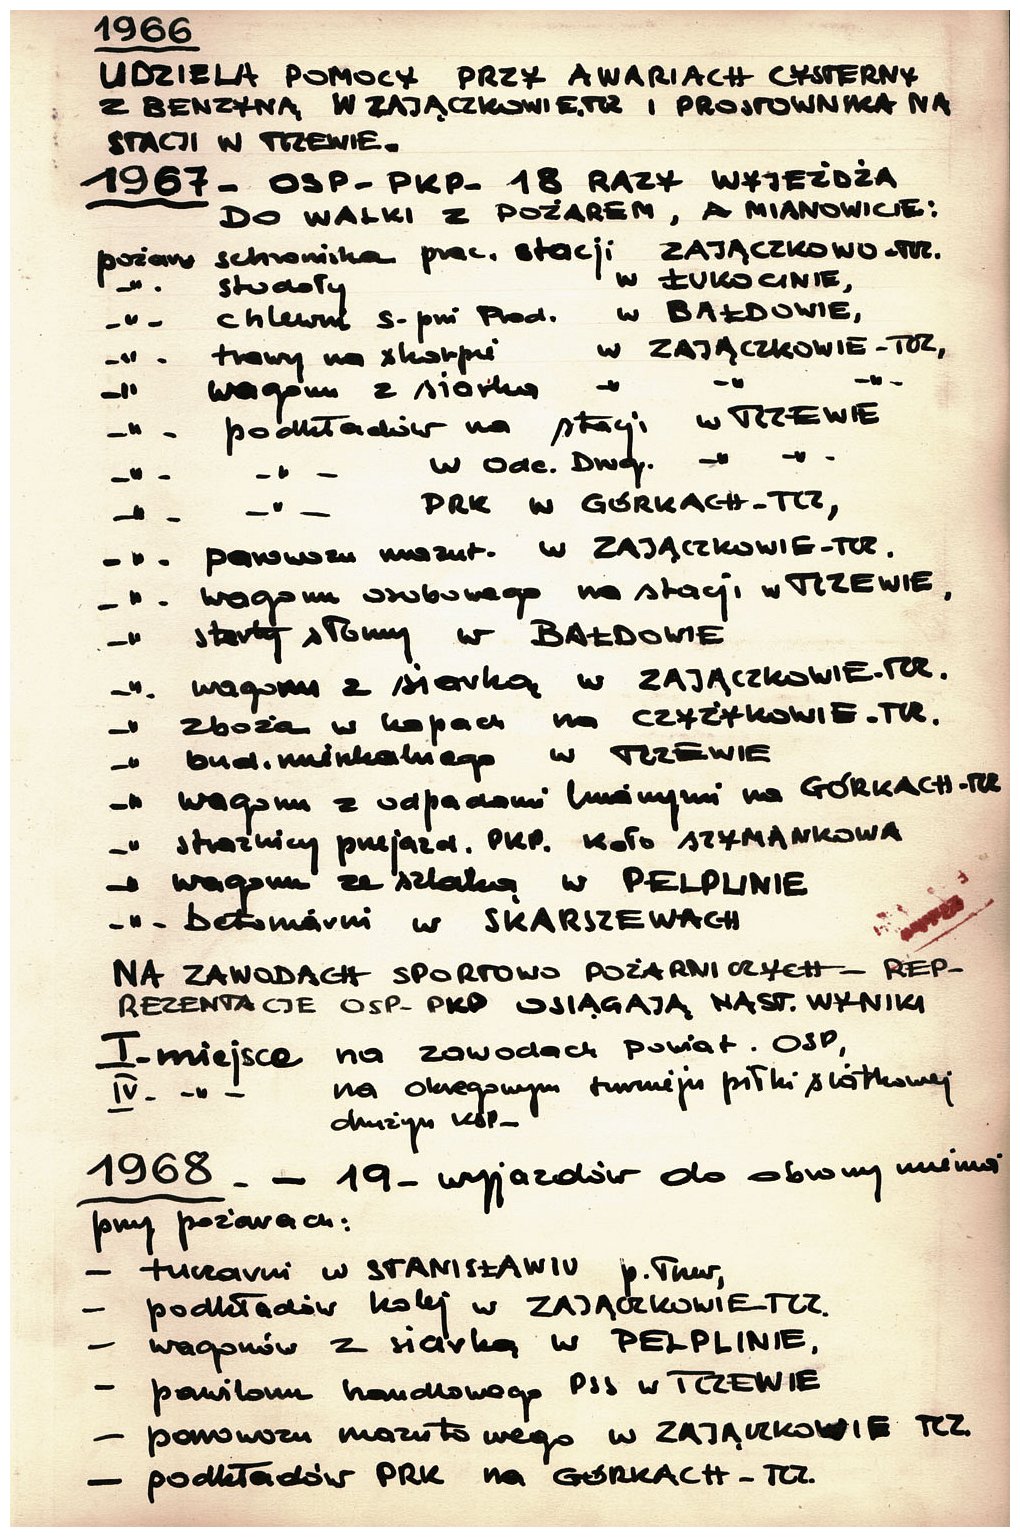 1966
UDZIELA POMOCY PRZY AWARIACH CYSTERNY
Z BENZYNĄ W ZAJĄCZKOWIE.TCZ I PROSTOWNIKA NA
STACJI W TCZEWIE.
1967 - OSP-PKP- 18 RAZY WYJEŻDŻA
DO WALKI Z POŻAREM, A MIANOWICIE:
pożaru schroniska prac. stacji ZAJĄCZKOWO-TCZ.
-"- stodoły w ŁUKOCINIE,
-"- chlewni S-pni Prod. w BAŁDOWIE,
-"- trawy na skarpie w ZAJĄCZKOWIE-TCZ,
-" wagonu z siarką -" -" -"-
-"- podkładów na stacji w TCZEWIE
-"- -"- w Odc. Drog. -" -"-
-"- -"- PRK w GÓRKACH-TCZ,
-"- parowozu mazut. w ZAJĄCZKOWIE-TCZ.
-"- wagonu osobowego na stacji w TCZEWIE,
-" sterty słomy w BAŁDOWIE
-"- wagonu z siarką w ZAJĄCZKOWIE-TCZ.
-" zboża w kopach na CZYŻYKOWIE-TCZ.
-" bud. mieszkalnego w TCZEWIE
-" wagonu z odpadami lnianymi na GÓRKACH-TCZ
-" strażnicy przejazd. PKP. koło SZYMANKOWA
-" wagonu ze szlaką w PELPLINIE
-"- betoniarni w SKARSZEWACH
NA ZAWODACH SPORTOWO POŻARNICZYCH - REP-
REZENTACJE OSP-PKP OSIĄGAJĄ NAST. WYNIKI
I-miejsce na zawodach powiat. OSP,
IV- -"- na okręgowym turnieju piłki siatkowej
drużyn KSP-
1968 - - 19 - wyjazdów do obrony mienia
przy pożarach:
- tuczarni w STANISŁAWIU p. Tczew,
- podkładów kolej w ZAJĄCZKOWIE-TCZ.
- wagonów z siarką w PELPLINIE,
- pawilonu handlowego PSS w TCZEWIE
- parowozu mazutowego w ZAJĄCZKOWIE TCZ.
- podkładów PRK na GÓRKACH-TCZ.